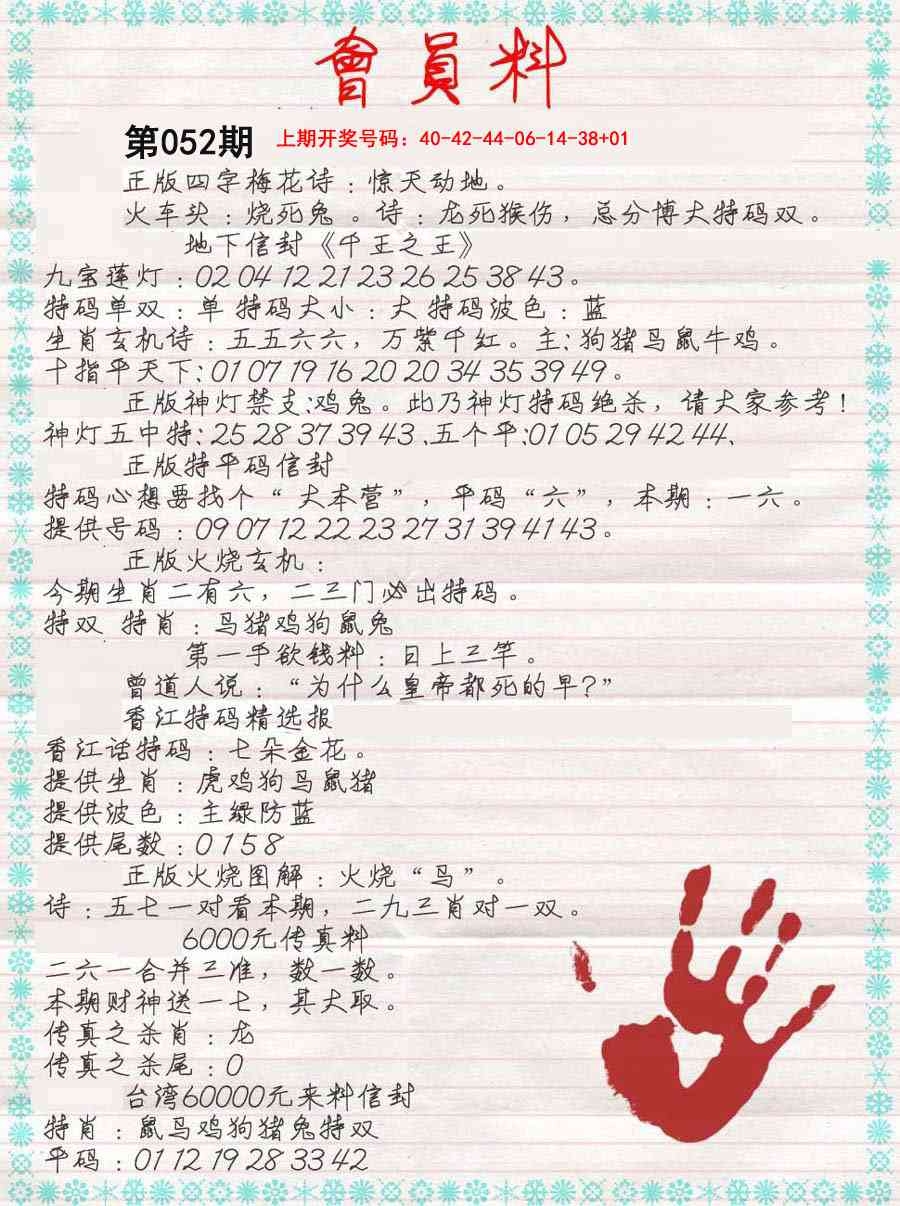 會員料
第052期 上期开奖号码：40-42-44-06-14-38+01
正版四字梅花诗：惊天动地。
火车头：烧死兔。诗：龙死猴伤，总分博大特码双。
地下信封《千王之王》
九宝莲灯：02 04 12 21 23 26 25 38 43。
特码单双：单 特码大小：大 特码波色：蓝
生肖玄机诗：五五六六，万紫千红。主：狗猪马鼠牛鸡。
十指平天下：01 07 19 16 20 20 34 35 39 49。
正版神灯禁支：鸡兔。此乃神灯特码绝杀，请大家参考！
神灯五中特：25 28 37 39 43、五个平：01 05 29 42 44、
正版特平码信封
特码心想要找个“大本营”，平码“六”，本期：一六。
提供号码：09 07 12 22 23 27 31 39 41 43。
正版火烧玄机：
今期生肖二有六，二三门必出特码。
特双 特肖：马猪鸡狗鼠兔
第一手欲钱料：日上三竿。
曾道人说：“为什么皇帝都死的早？”
香江特码精选报
香江话特码：七朵金花。
提供生肖：虎鸡狗马鼠猪
提供波色：主绿防蓝
提供尾数：0 1 5 8
正版火烧图解：火烧“鸟”。
诗：五七一对看本期，二九三肖对一双。
6000元传真料
二六一合并三准，数一数。
本期财神送一七，其大取。
传真之杀肖：龙
传真之杀尾：0
台湾60000元来料信封
特肖：鼠马鸡狗猪兔特双
平码：01 12 19 28 33 42